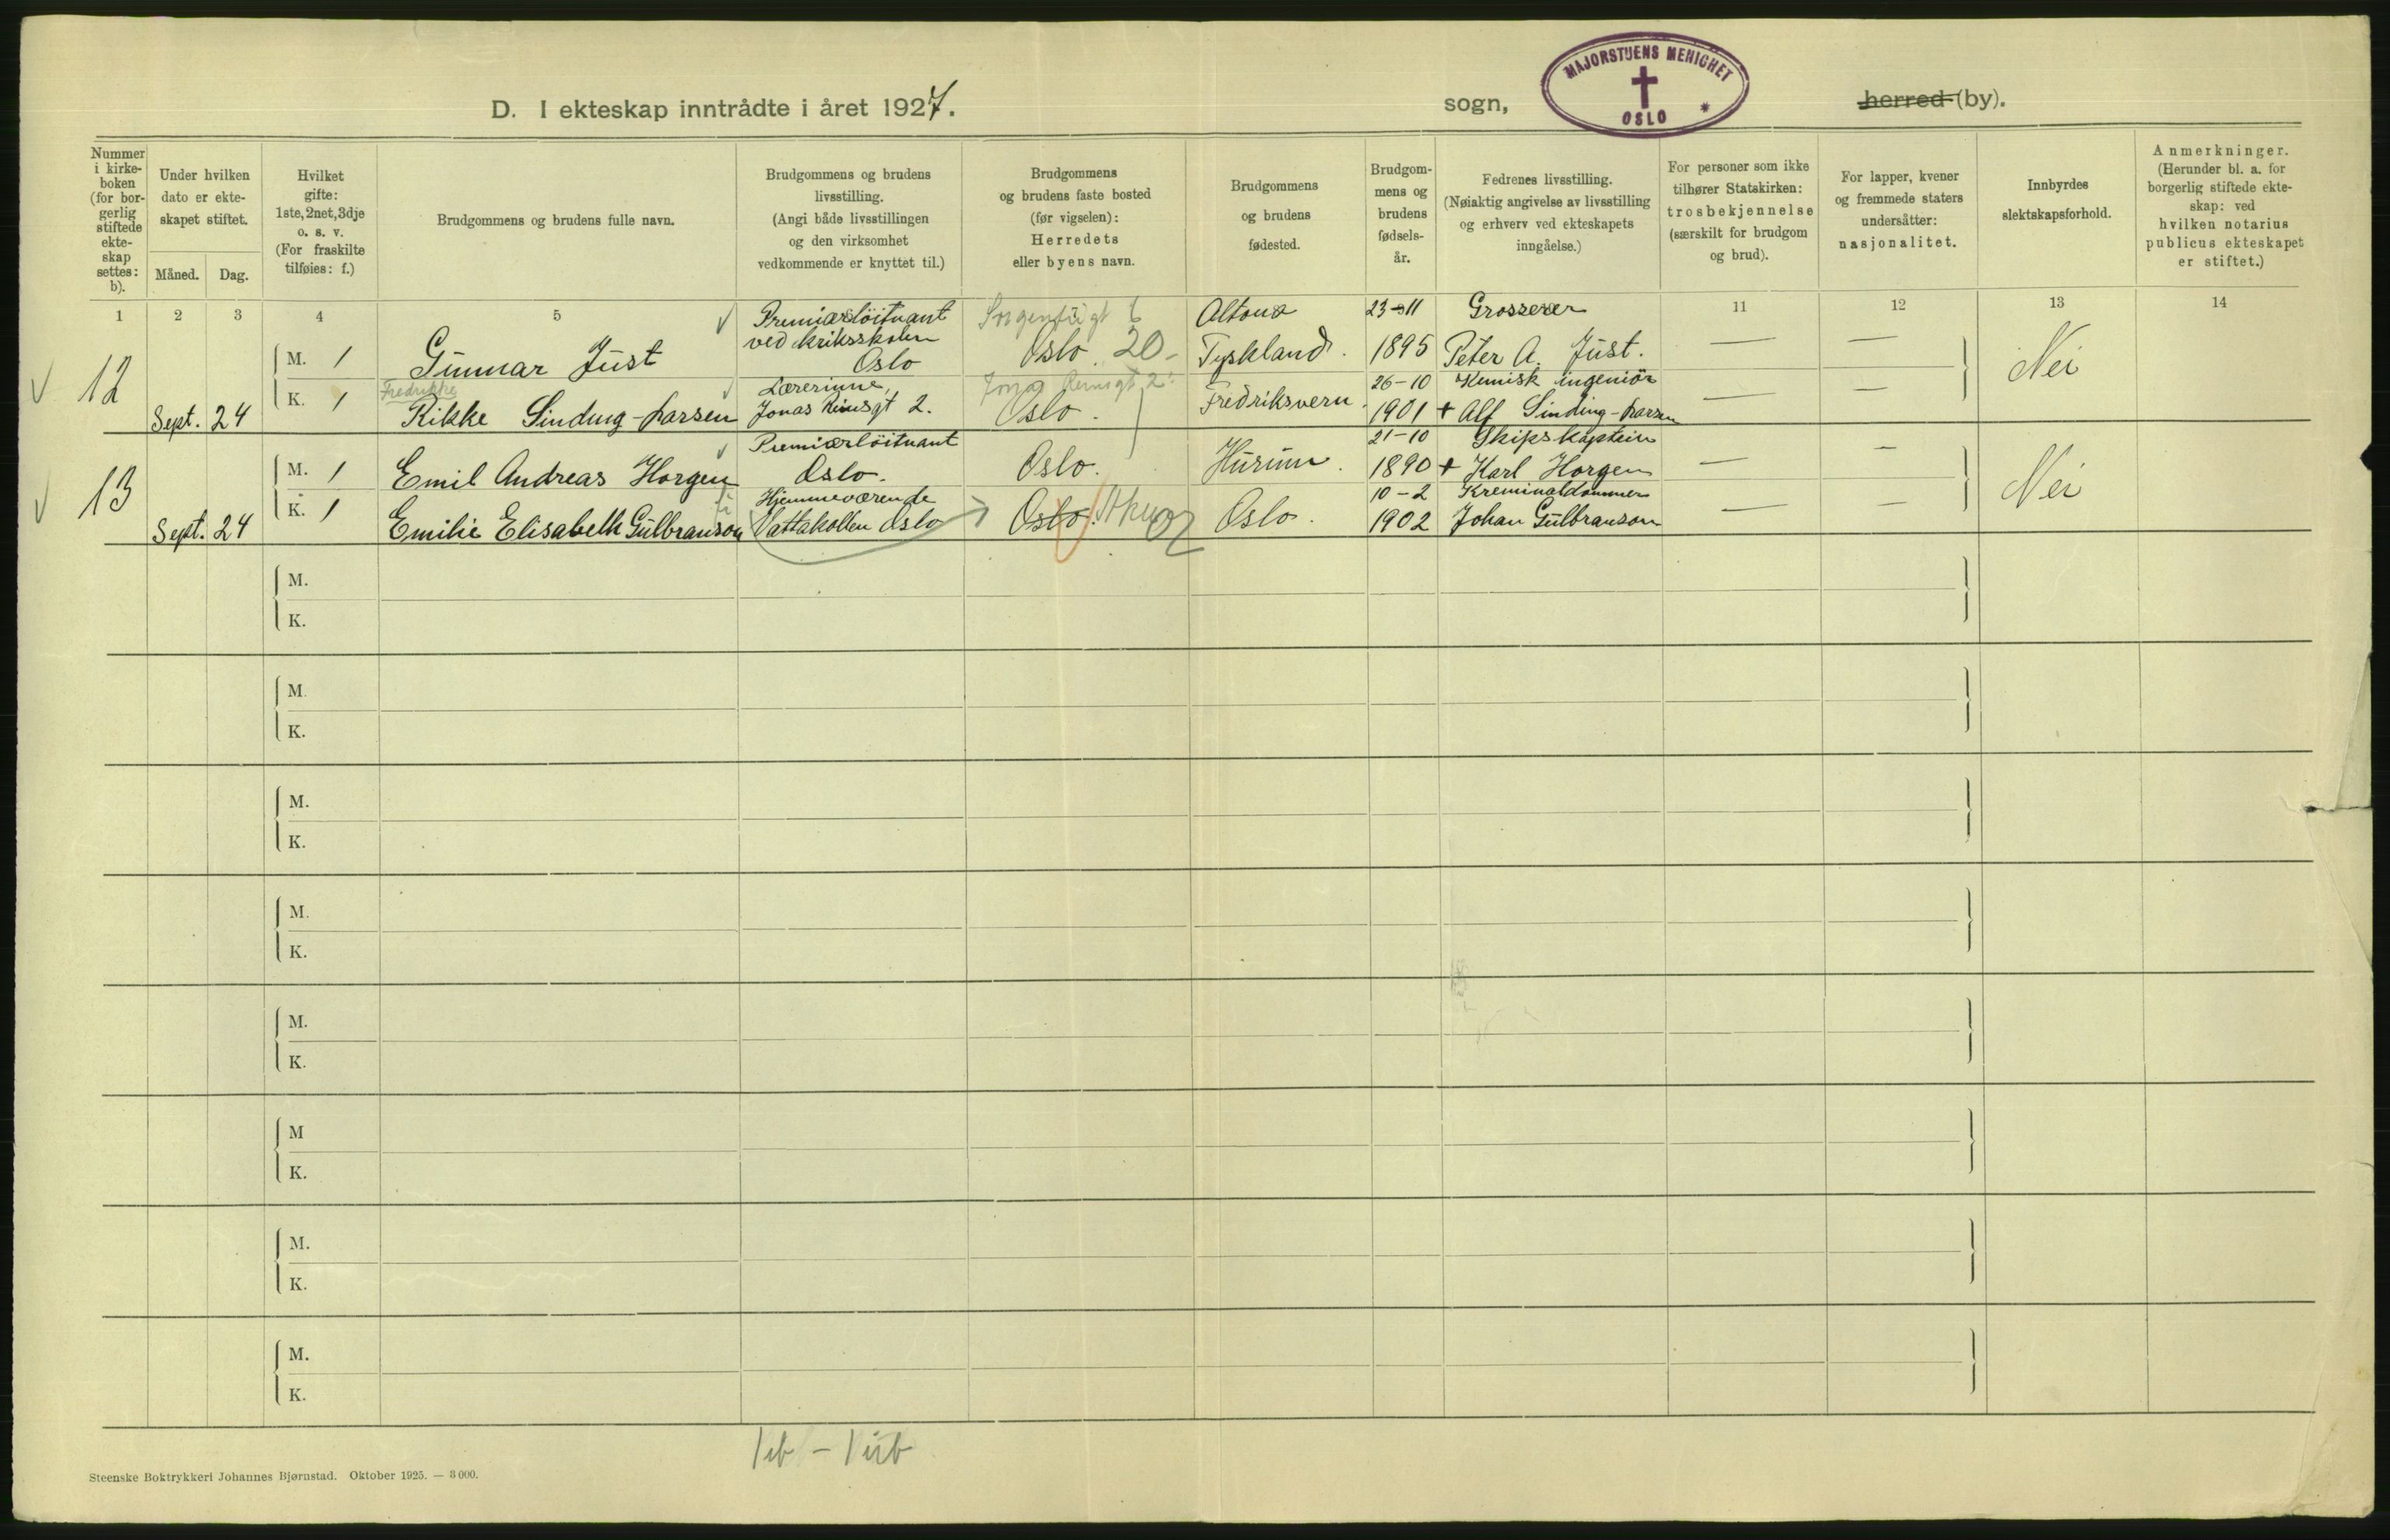 MAJORSTUENS MENIGHET
OSLO
D. I ekteskap inntrådte i året 1927.
sogn,
herred (by).
Nummer i kirke-boken (for bor-gerlig stiftede ekte-skap settes: b).
Under hvilken dato er ekte-skapet stiftet.
Måned.
Dag.
Hvilket gifte: 1ste, 2net, 3dje o. s. v. (For fraskilte tilføies: f.)
Brudgommens og brudens fulle navn.
Brudgommens og brudens livsstilling. (Angi både livsstillingen og den virksomhet vedkommende er knyttet til.)
Brudgommens og brudens faste bosted (før vigselen): Herredets eller byens navn.
Brudgommens og brudens fødested.
Brudgom-mens og brudens fødsels-år.
Fedrenes livsstilling. (Nøiaktig angivelse av livsstilling og erhverv ved ekteskapets inngåelse.)
For personer som ikke tilhører Statskirken: trosbekjennelse (særskilt for brudgom og brud).
For lapper, kvener og fremmede staters undersåtter: nasjonalitet.
Innbyrdes slektskapsforhold.
Anmerkninger. (Herunder bl. a. for borgerlig stiftede ekte-skap: ved hvilken notarius publicus ekteskapet er stiftet.)
1 2 3 4 5 11 12 13 14
12 Sept. 24
M. 1 Gunnar Just Premiærløitnant ved krigsskolen Oslo Oslo 20 Altona Tyskland. 23-11 1895 Grosserer Peter A. Just. — — Nei
K. 1 Fredrikke Rikke Sinding-Larsen Lærerinne, Jonas Reinsgt 2. Jonas Reinsgt 2. Oslo. Fredriksvern. 26-10 1901 Kemisk ingeniör + Alf Sinding-Larsen — —
13 Sept. 24
M. 1 Emil Andreas Horgen Premiærløitnant Oslo. Oslo. Hurum. 21-10 1890 Skipskaptein + Karl Horgen — — Nei
K. 1 Emilie Elisabeth Gulbranson Hjemmeværende Vettakollen Oslo Oslo. Aker Oslo. 10-2 1902 Kreminaldommer Johan Gulbranson — —
M.
K.
M.
K.
M.
K.
M.
K.
M.
K.
M
K.
M.
K.
M.
K.
1 ib - 1 uib
Steenske Boktrykkeri Johannes Bjørnstad. Oktober 1925. — 3000.